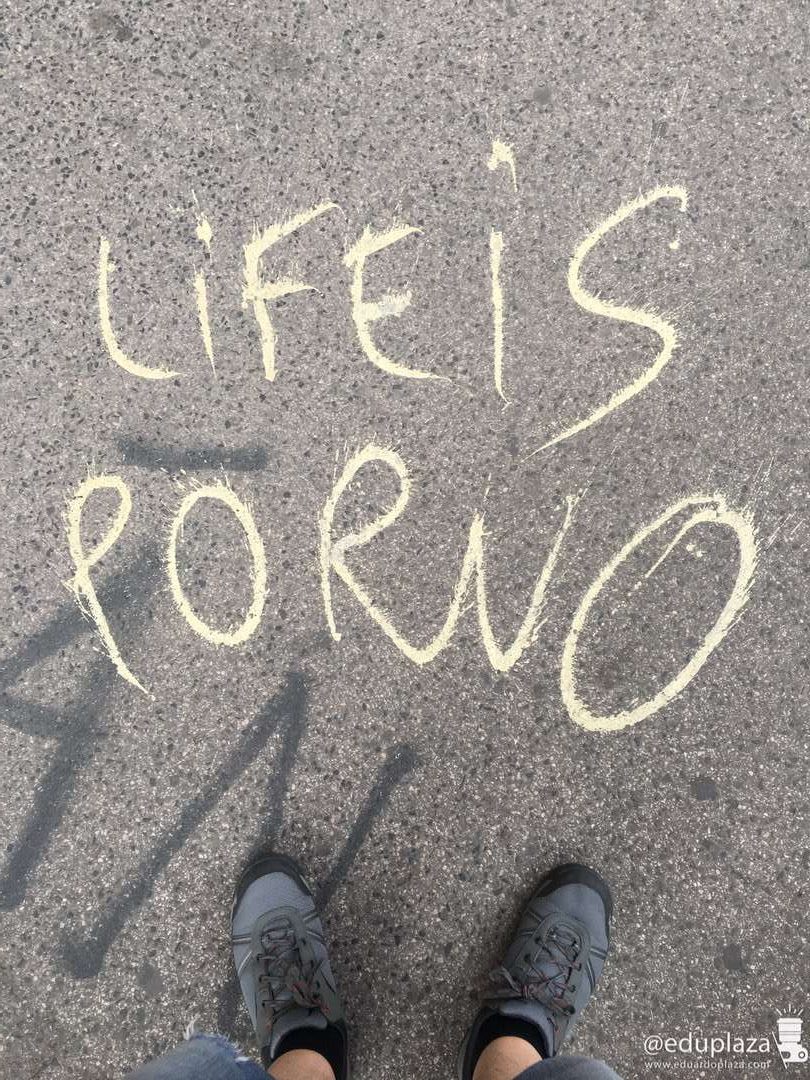 LiFE iS
PORNO
@eduplaza
www.eduardoplaza.com